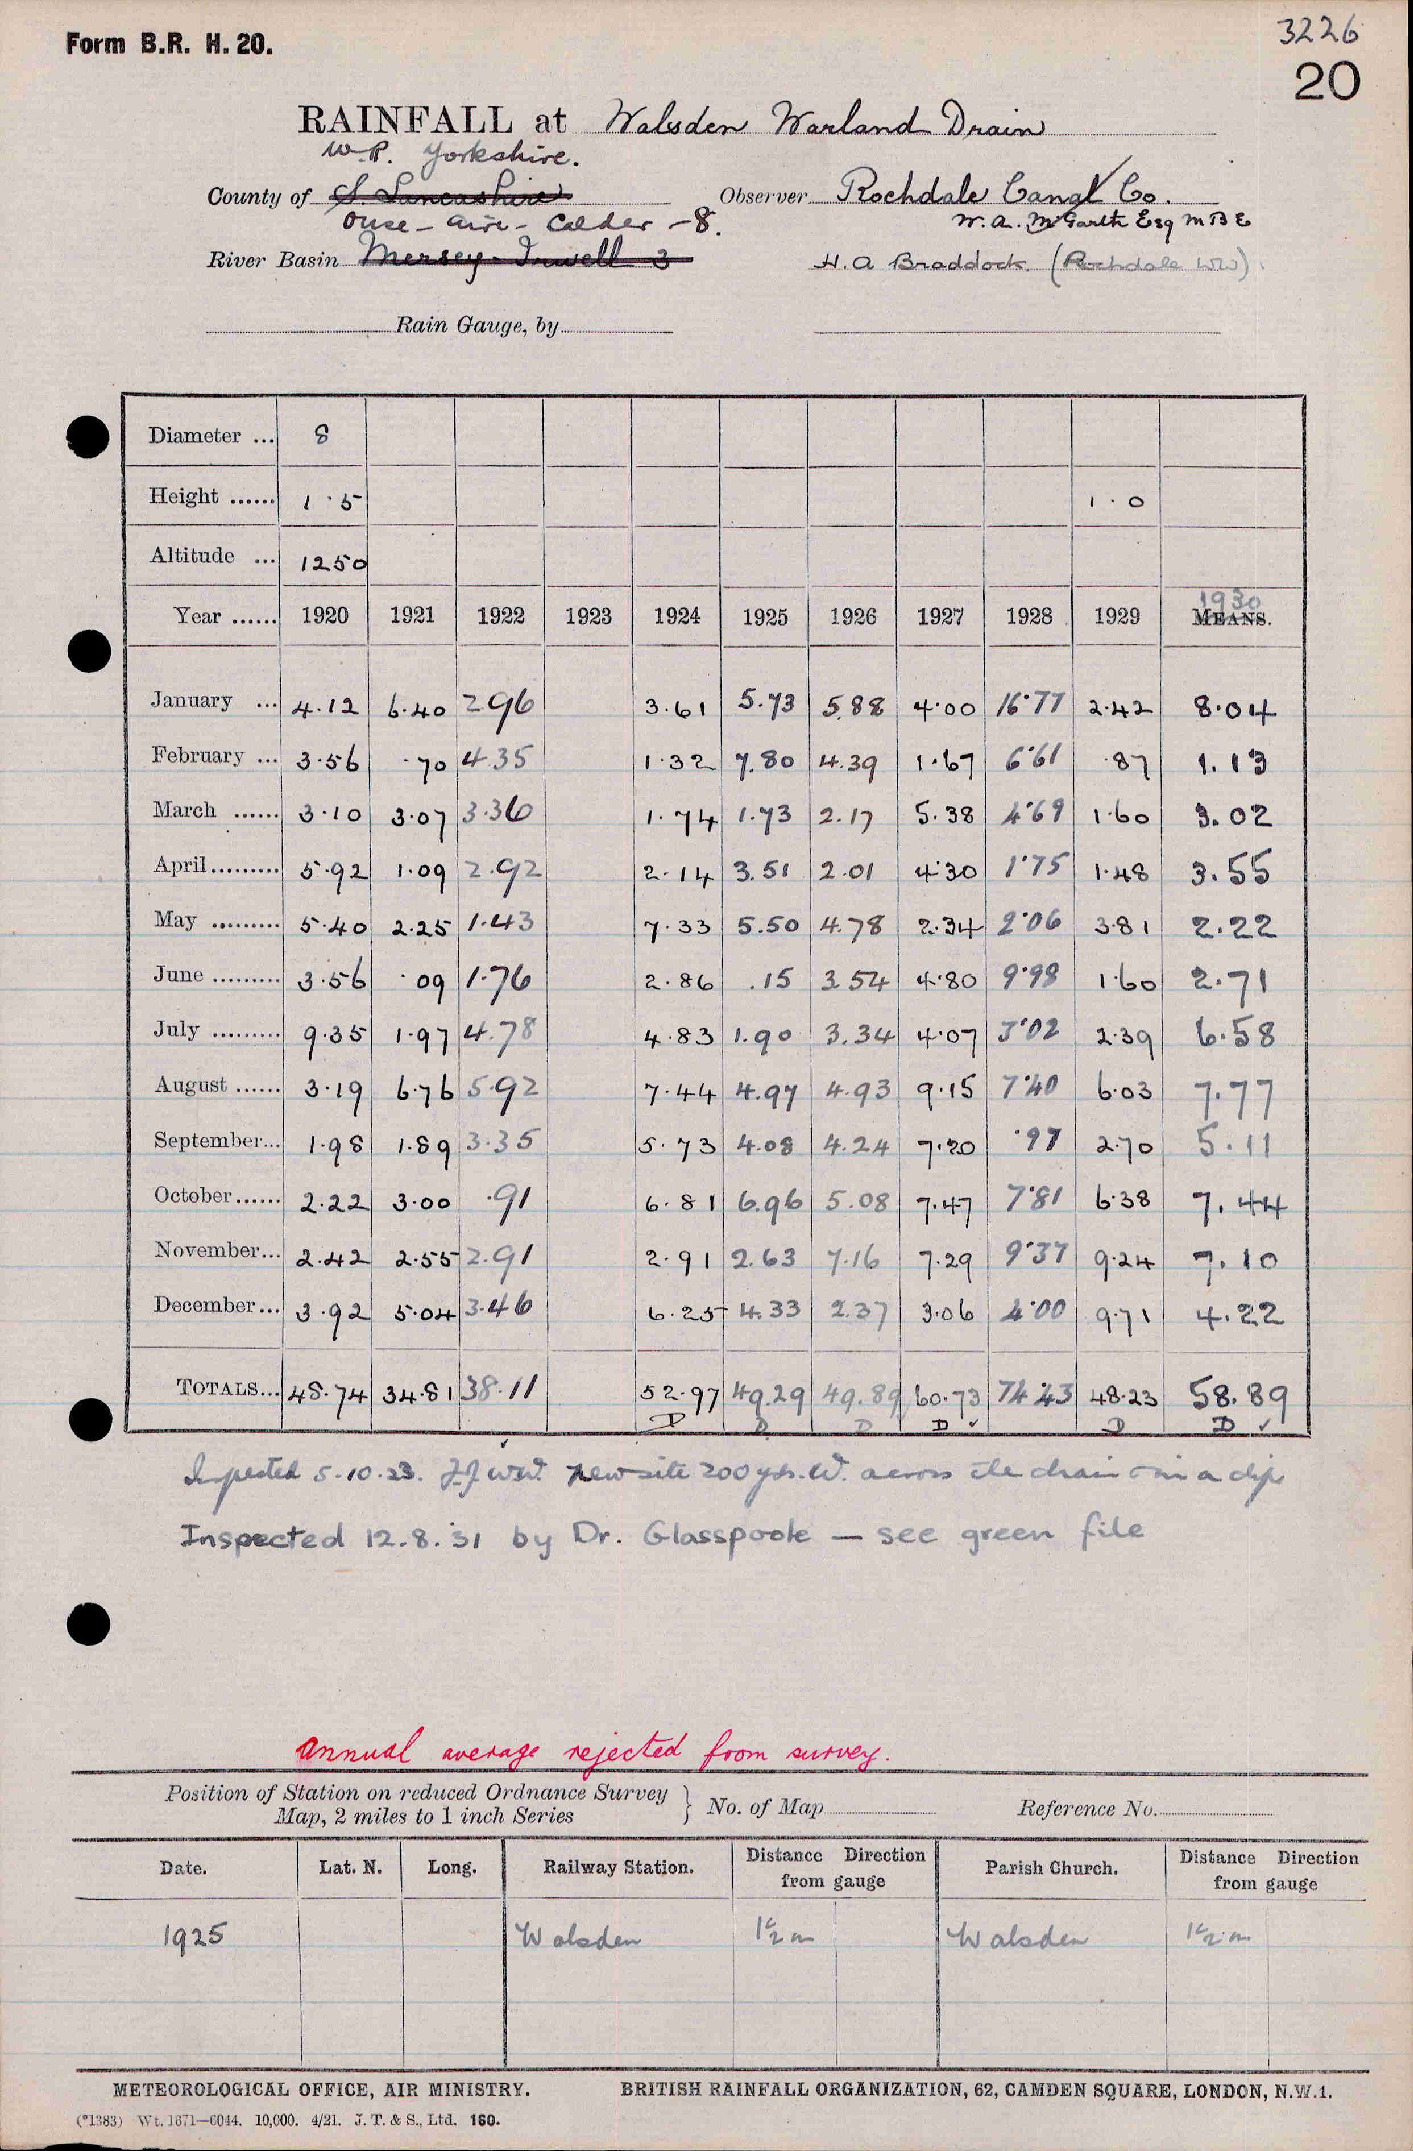 Form B.R. H. 20.
3226
20
RAINFALL at Walsden Warland Drain
W.R. Yorkshire.
County of S. Lancashire Observer Rochdale Canal Co.
Ouse - Aire - Calder - 8. W. A. McGarth Esq MBE
River Basin Mersey - Irwell 3 H. A Braddock (Rochdale WW)
Rain Gauge, by
Diameter ... 8
Height ...... 1.5 1.0
Altitude ... 1250
1930
Year ...... 1920 1921 1922 1923 1924 1925 1926 1927 1928 1929 MEANS.
January ... 4.12 6.40 2.96 3.61 5.73 5.88 4.00 16.77 2.42 8.04
February ... 3.56 .70 4.35 1.32 7.80 4.39 1.67 6.61 .87 1.13
March ...... 3.10 3.07 3.36 1.74 1.73 2.17 5.38 4.69 1.60 3.02
April......... 5.92 1.09 2.92 2.14 3.51 2.01 4.30 1.75 1.48 3.55
May ......... 5.40 2.25 1.43 7.33 5.50 4.78 2.34 2.06 3.81 2.22
June ......... 3.56 .09 1.76 2.86 .15 3.54 4.80 9.98 1.60 2.71
July ......... 9.35 1.97 4.78 4.83 1.90 3.34 4.07 3.02 2.39 6.58
August ...... 3.19 6.76 5.92 7.44 4.97 4.93 9.15 7.40 6.03 7.77
September... 1.98 1.89 3.35 5.73 4.08 4.24 7.20 .97 2.70 5.11
October...... 2.22 3.00 .91 6.81 6.96 5.08 7.47 7.81 6.38 7.44
November... 2.42 2.55 2.91 2.91 2.63 7.16 7.29 9.37 9.24 7.10
December... 3.92 5.04 3.46 6.25 4.33 2.37 3.06 4.00 9.71 4.22
TOTALS... 48.74 34.81 38.11 52.97 49.29 49.89 60.73 74.43 48.23 58.89
D D D D ✓ D D ✓
Inspected 5.10.23. new site 200 yds. W. across the drain in a dip
Inspected 12.8.'31 by Dr. Glasspoole — see green file
Annual average rejected from survey.
Position of Station on reduced Ordnance Survey
Map, 2 miles to 1 inch Series } No. of Map Reference No.
Date. Lat. N. Long. Railway Station. Distance Direction from gauge Parish Church. Distance Direction from gauge
1925 Walsden 1½ m Walsden 1½ m
METEOROLOGICAL OFFICE, AIR MINISTRY. BRITISH RAINFALL ORGANIZATION, 62, CAMDEN SQUARE, LONDON, N.W.1.
(*1383) Wt. 1871—6044. 10,000. 4/21. J. T. & S., Ltd. 160.